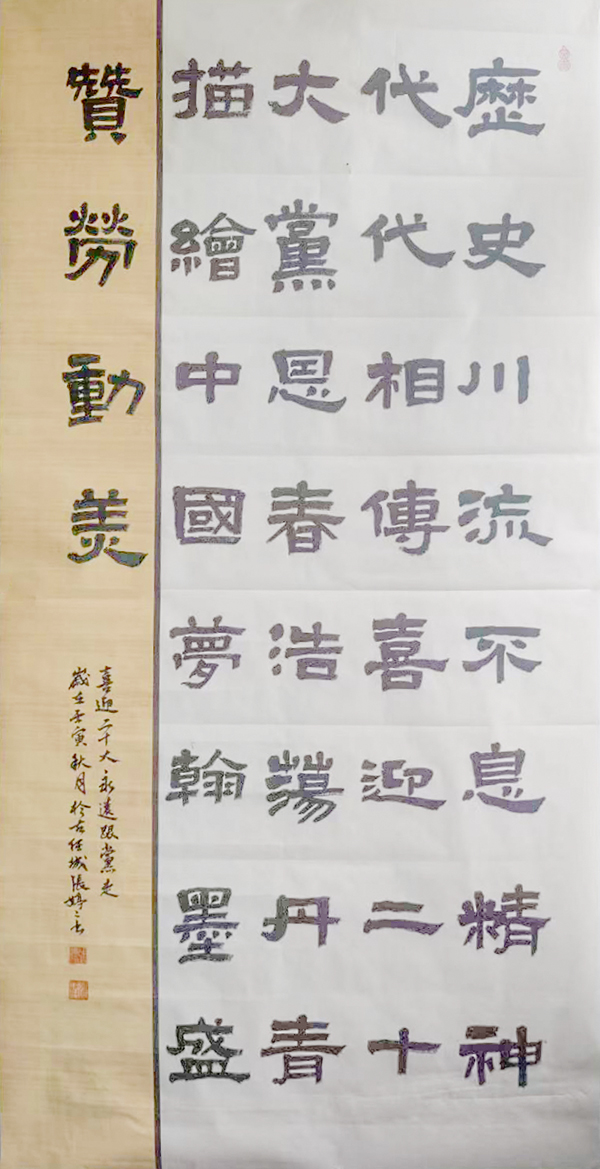 歷史川流不息精神
代代相傳喜迎二十
大黨恩春浩蕩丹青
描繪中國夢翰墨盛
贊勞動美
喜迎二十大永遠跟黨走
歲在壬寅秋月於古任城張婷婷書